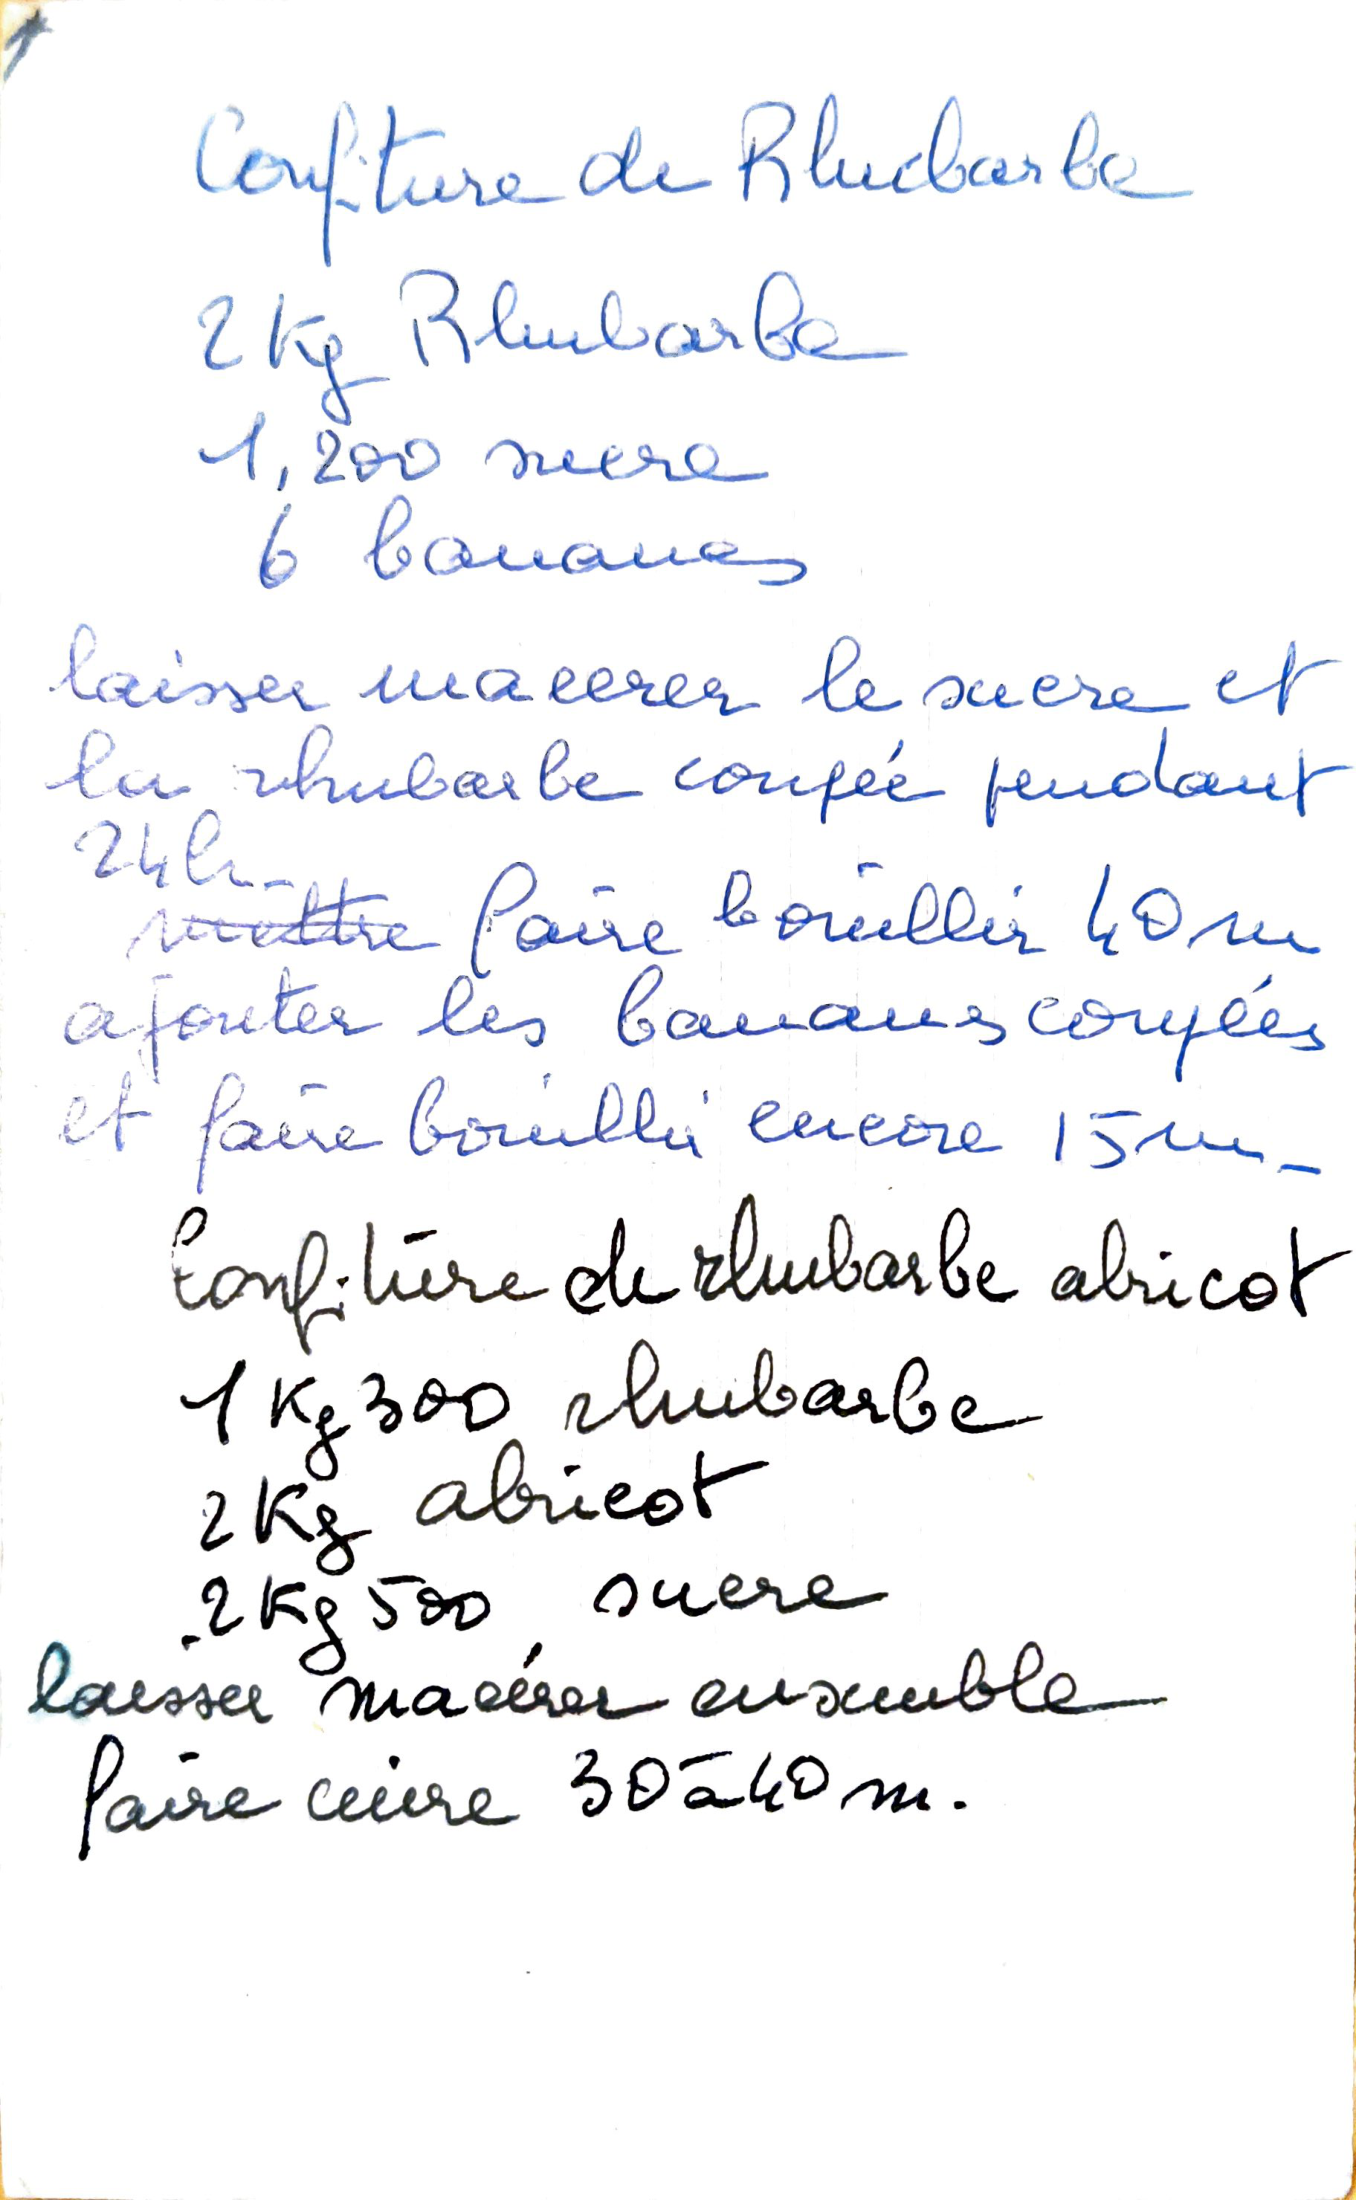 Confiture de Rhubarbe
2 Kg Rhubarbe
1,200 sucre
6 bananes
laisser macerer le sucre et
la rhubarbe coupée pendant
24h_
mettre faire bouillir 40 m
ajouter les bananes coupées
et faire bouillir encore 15 m_
Confiture de rhubarbe abricot
1 Kg 300 rhubarbe
2 Kg abricot
2 Kg 500 sucre
laisser macérer ensemble
faire cuire 30 à 40 m.